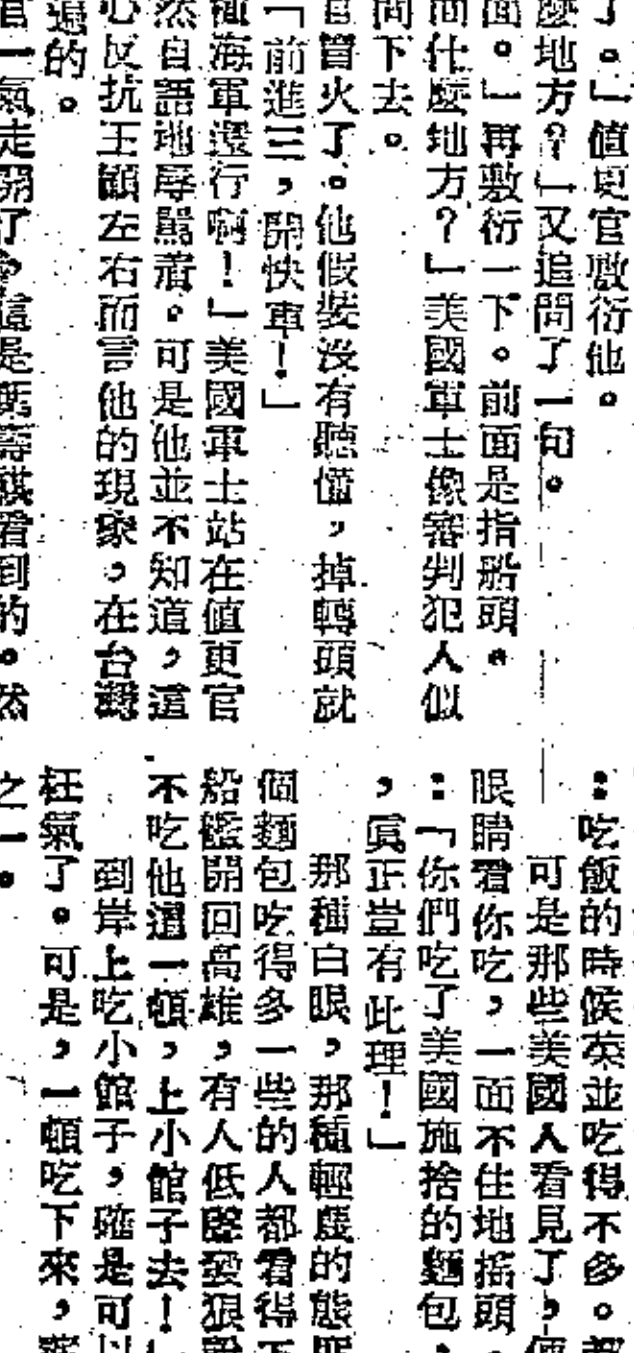 了。」值更官敷衍他。
麼地方？」又追問了一句。
面。」再敷衍一下。前面是指船頭。
問什麼地方？」美國軍士像審判犯人似
問下去。
官冒火了。他假裝沒有聽懂，掉轉頭就
「前進三，開快車！」
種海軍還行啊！」美國軍士站在值更官
然自語地辱罵着。可是他並不知道，這
心反抗王顧左右而言他的現象，在台灣
過的。
官一氣走開了，這是 看到的。然
：吃飯的時候菜並吃得不多。都
可是那些美國人看見了，便
眼睛看你吃，一面不住地搖頭。
：「你們吃了美國施捨的麵包，
，眞正豈有此理！」
那種白眼，那種輕蔑的態度
個麵包吃得多一些的人都看得不
船艦開回高雄，有人低聲發狠說
不吃他這一頓，上小館子去！」
到岸上吃小館子，確是可以
枉氣了。可是，一頓吃下來，薪
之一。